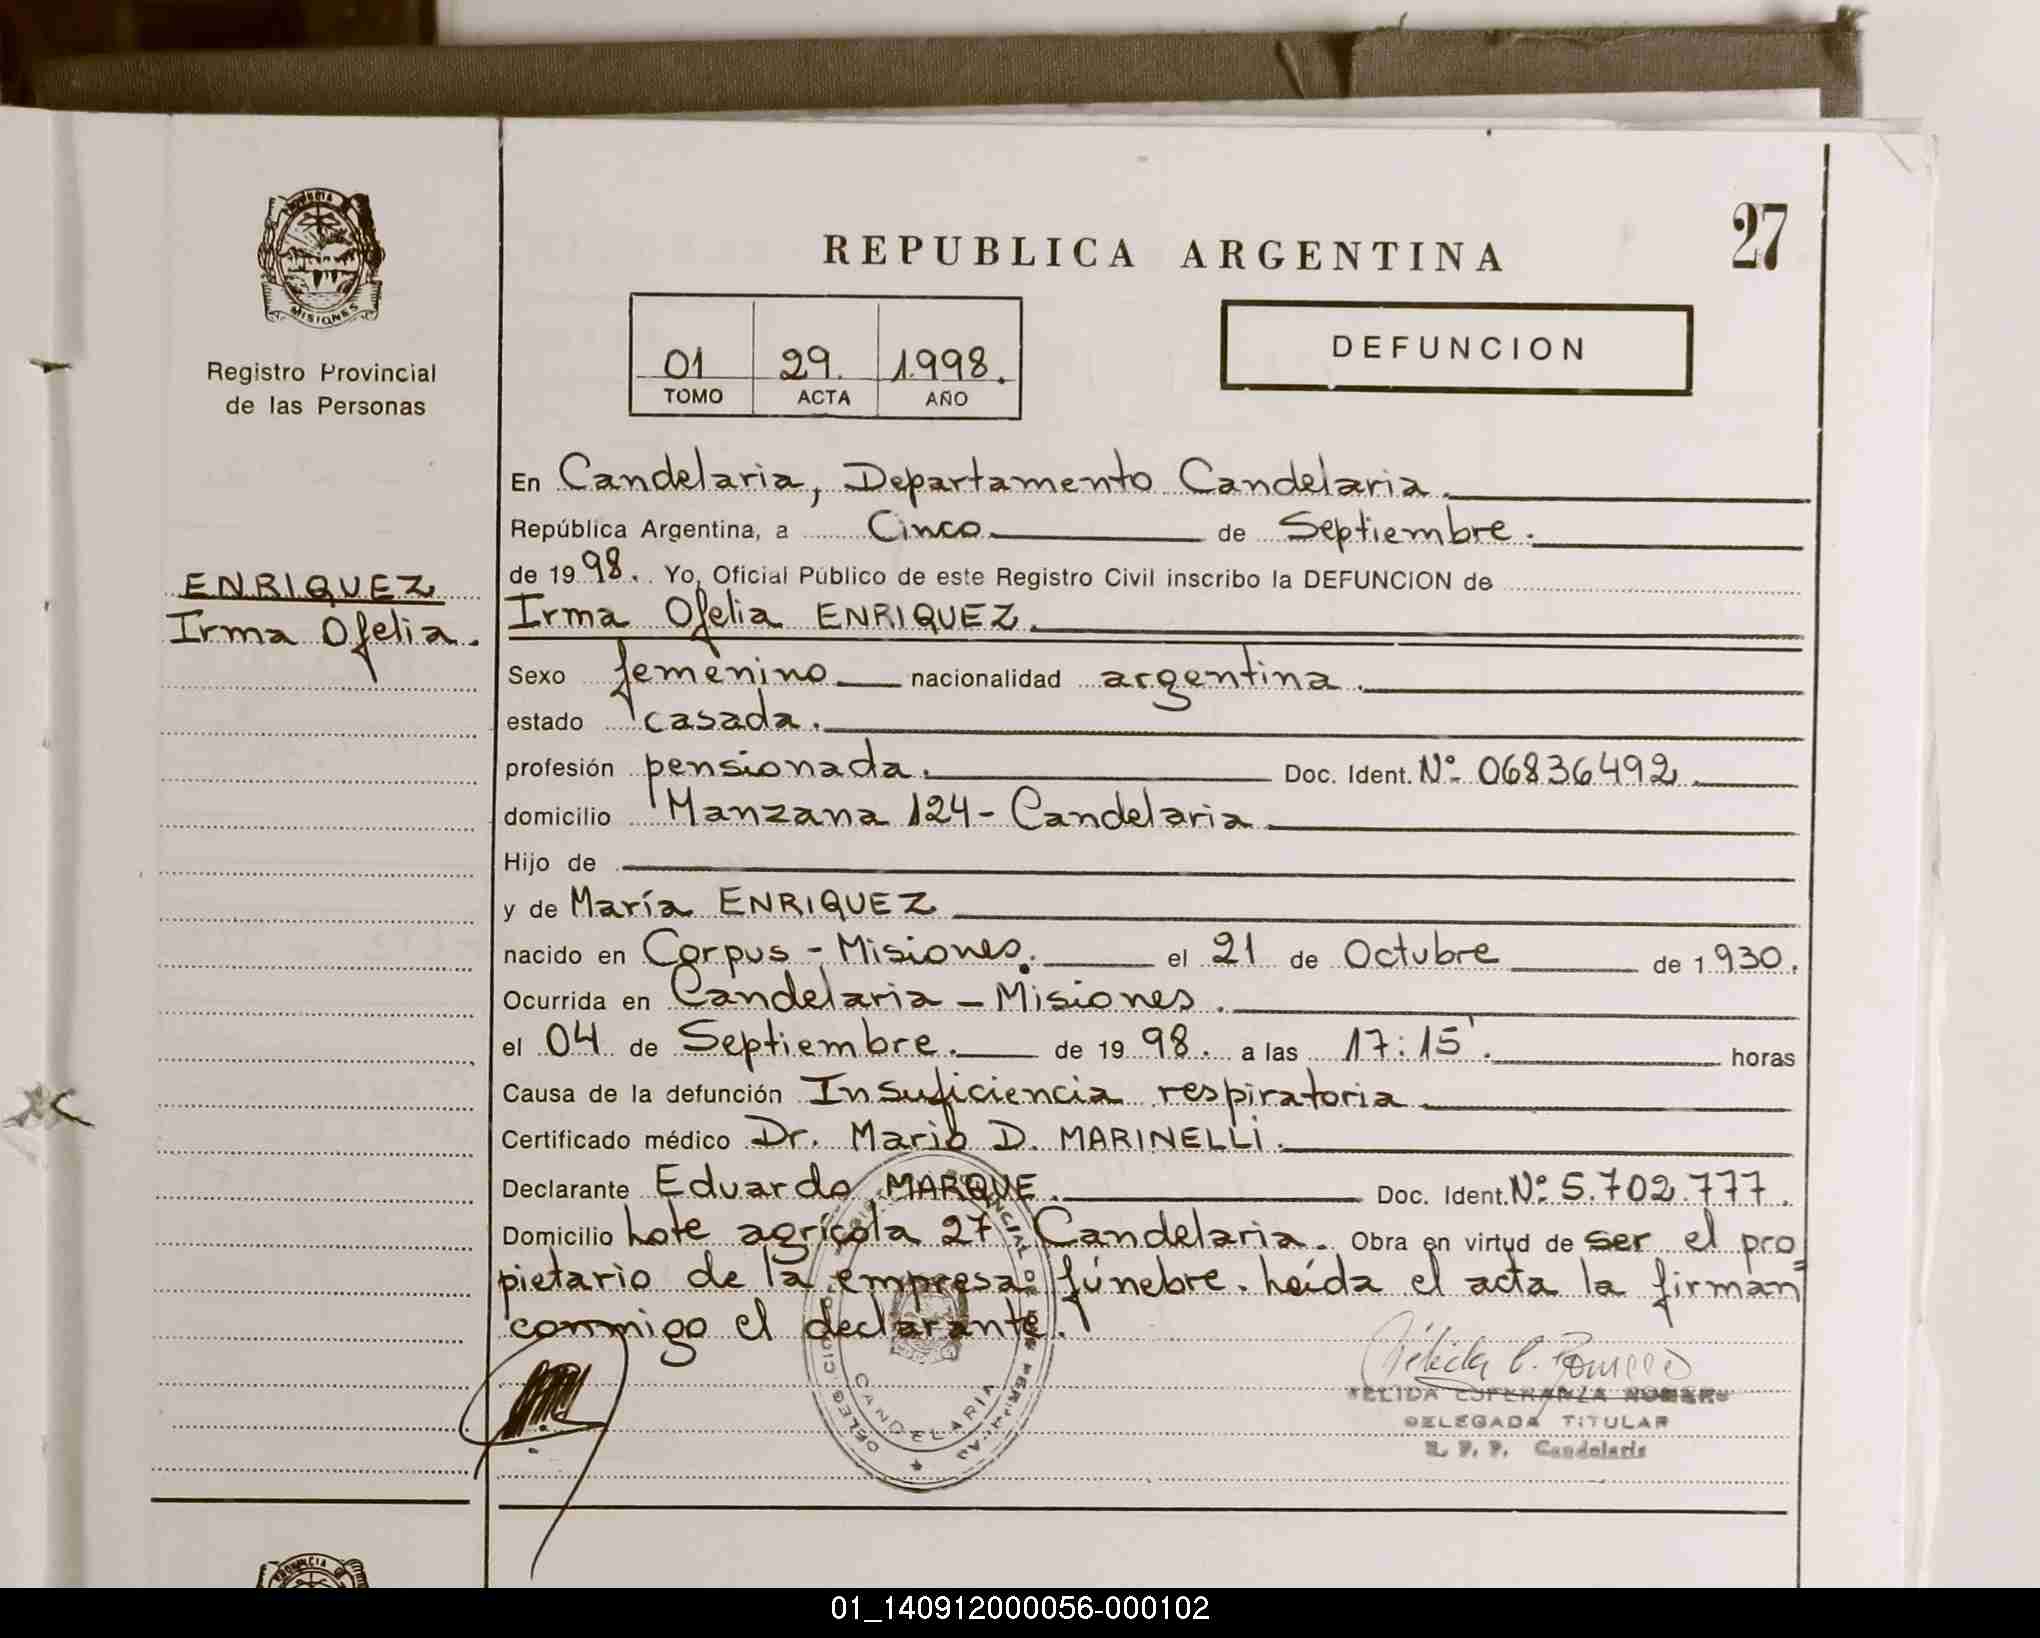 REPUBLICA ARGENTINA
27
DEFUNCION
01 29. 1.998.
TOMO ACTA AÑO
MISIONES
Registro Provincial
de las Personas
ENRIQUEZ
Irma Ofelia.
En Candelaria, Departamento Candelaria.
República Argentina, a Cinco de Septiembre.
de 1998. Yo, Oficial Público de este Registro Civil inscribo la DEFUNCION de
Irma Ofelia ENRIQUEZ.
Sexo femenino nacionalidad argentina.
estado casada.
profesión pensionada. Doc. Ident. Nº 06836492.
domicilio Manzana 124 - Candelaria
Hijo de
y de María ENRIQUEZ
nacido en Corpus - Misiones. el 21 de Octubre de 1.930.
Ocurrida en Candelaria - Misiones.
el 04 de Septiembre. de 1998. a las 17:15'. horas
Causa de la defunción Insuficiencia respiratoria
Certificado médico Dr. Mario D. MARINELLI.
Declarante Eduardo MARQUE. Doc. Ident. Nº 5.702.777.
Domicilio Lote agrícola 27 Candelaria. Obra en virtud de ser el pro
pietario de la empresa fúnebre. Leída el acta la firman
conmigo el declarante.
CANDELARIA
DELEGADA TITULAR
R. P. P. Candelaria
PROVINCIA
01_140912000056-000102